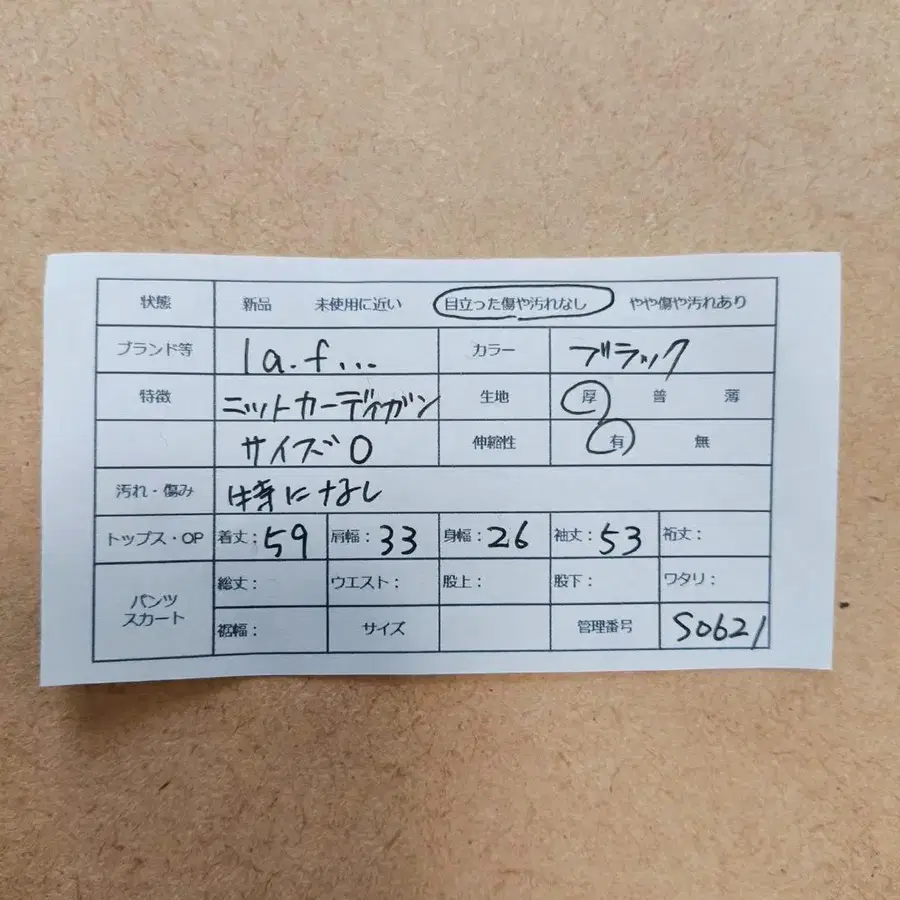 状態 新品 未使用に近い 目立った傷や汚れなし やや傷や汚れあり
ブランド等 la.f... カラー ブラック
特徴 ニットカーディガン 生地 厚 普 薄
サイズ0 伸縮性 有 無
汚れ・傷み 特になし
トップス・OP 着丈：59 肩幅：33 身幅：26 袖丈：53 裄丈：
パンツ スカート 総丈： ウエスト： 股上： 股下： ワタリ：
裾幅： サイズ 管理番号 S0621